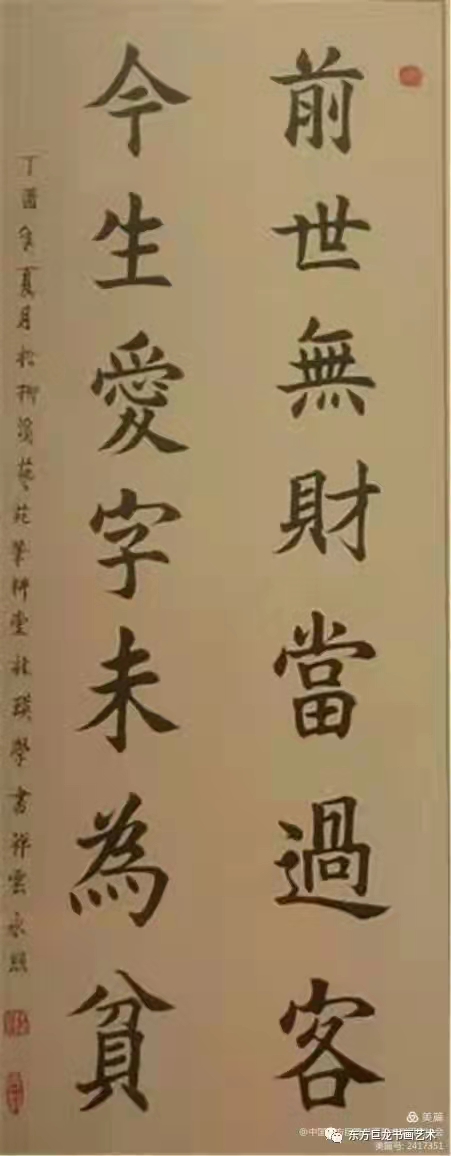 前世無財當過客
今生愛字未為貧
丁酉年夏月於柳濱藝苑筆耕堂 瑛學書祥雲永照
美篇
@中国
东方巨龙书画艺术
美篇号: 2417351